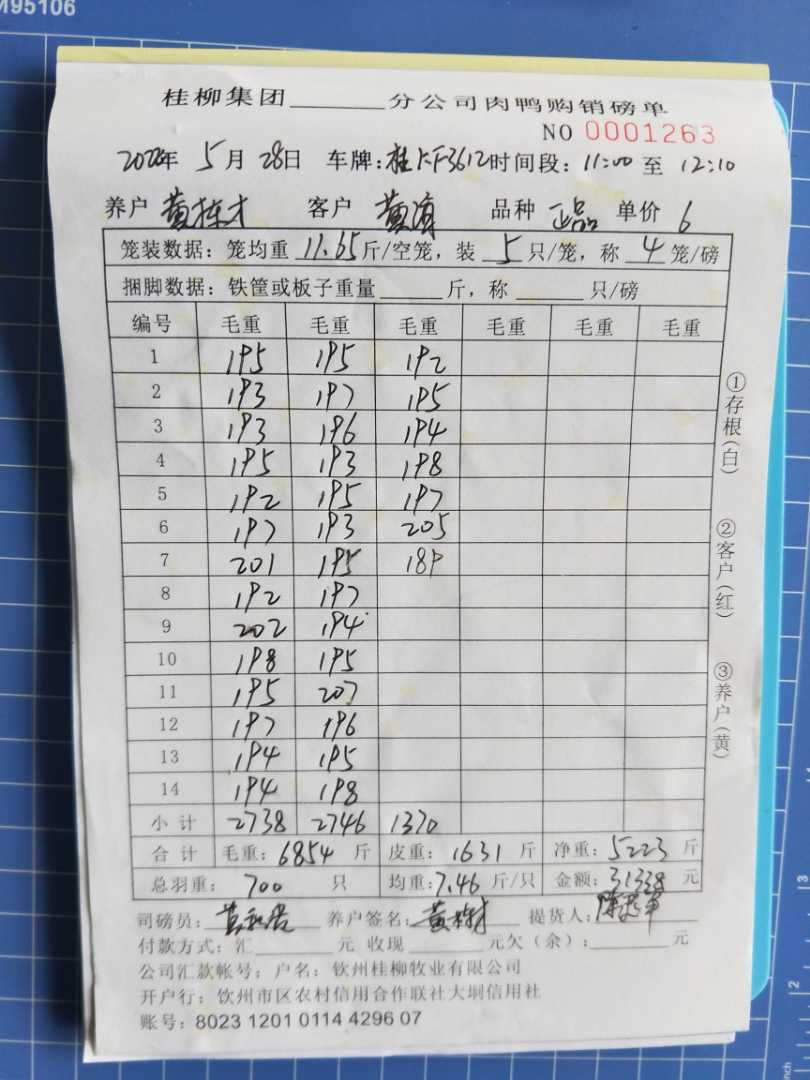 M95106
桂柳集团______分公司肉鸭购销磅单
NO 0001263
年 5月28日 车牌:桂KF3612 时间段:11:00 至 12:10
养户 黄栋才 客户 黄 品种 正品 单价 6
笼装数据:笼均重 11.65 斤/空笼,装 5 只/笼,称 4 笼/磅
捆脚数据:铁筐或板子重量______斤,称______只/磅
编号 毛重 毛重 毛重 毛重 毛重 毛重
1 195 195 192
2 193 197 195
3 193 196 194
4 195 193 198
5 192 195 197
6 197 193 205
7 201 195 189
8 192 197
9 202 194
10 198 195
11 195 207
12 197 196
13 194 195
14 194 198
小计 2738 2746 1370
合计 毛重:6854 斤 皮重:1631 斤 净重:5223 斤
总羽重:700 只 均重:7.46 斤/只 金额:31338 元
司磅员: 养户签名:黄栋才 提货人:陈
付款方式:汇______元 收现______元欠(余):______元
公司汇款帐号:户名:钦州桂柳牧业有限公司
开户行:钦州市区农村信用合作联社大垌信用社
账号:8023 1201 0114 4296 07
①存根(白)
②客户(红)
③养户(黄)
3
2
inch